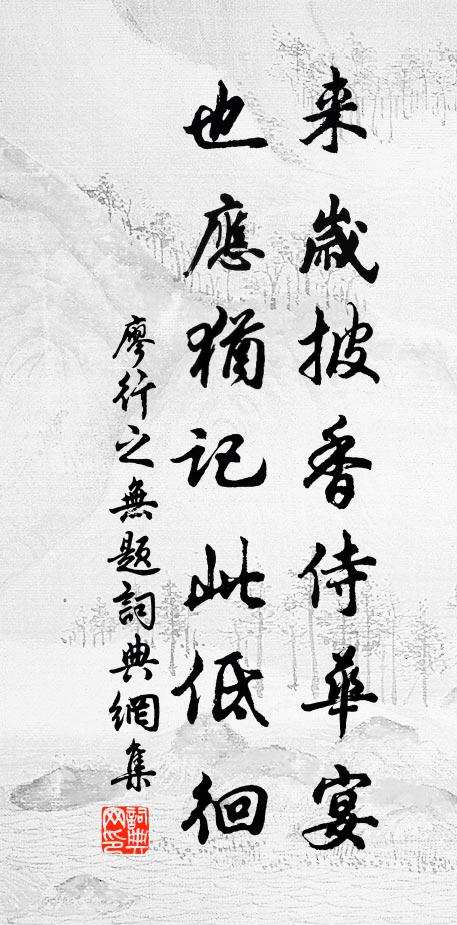 来歲披香侍華宴
也應猶記此低徊
廖行之無題詞典網集
詞典网印